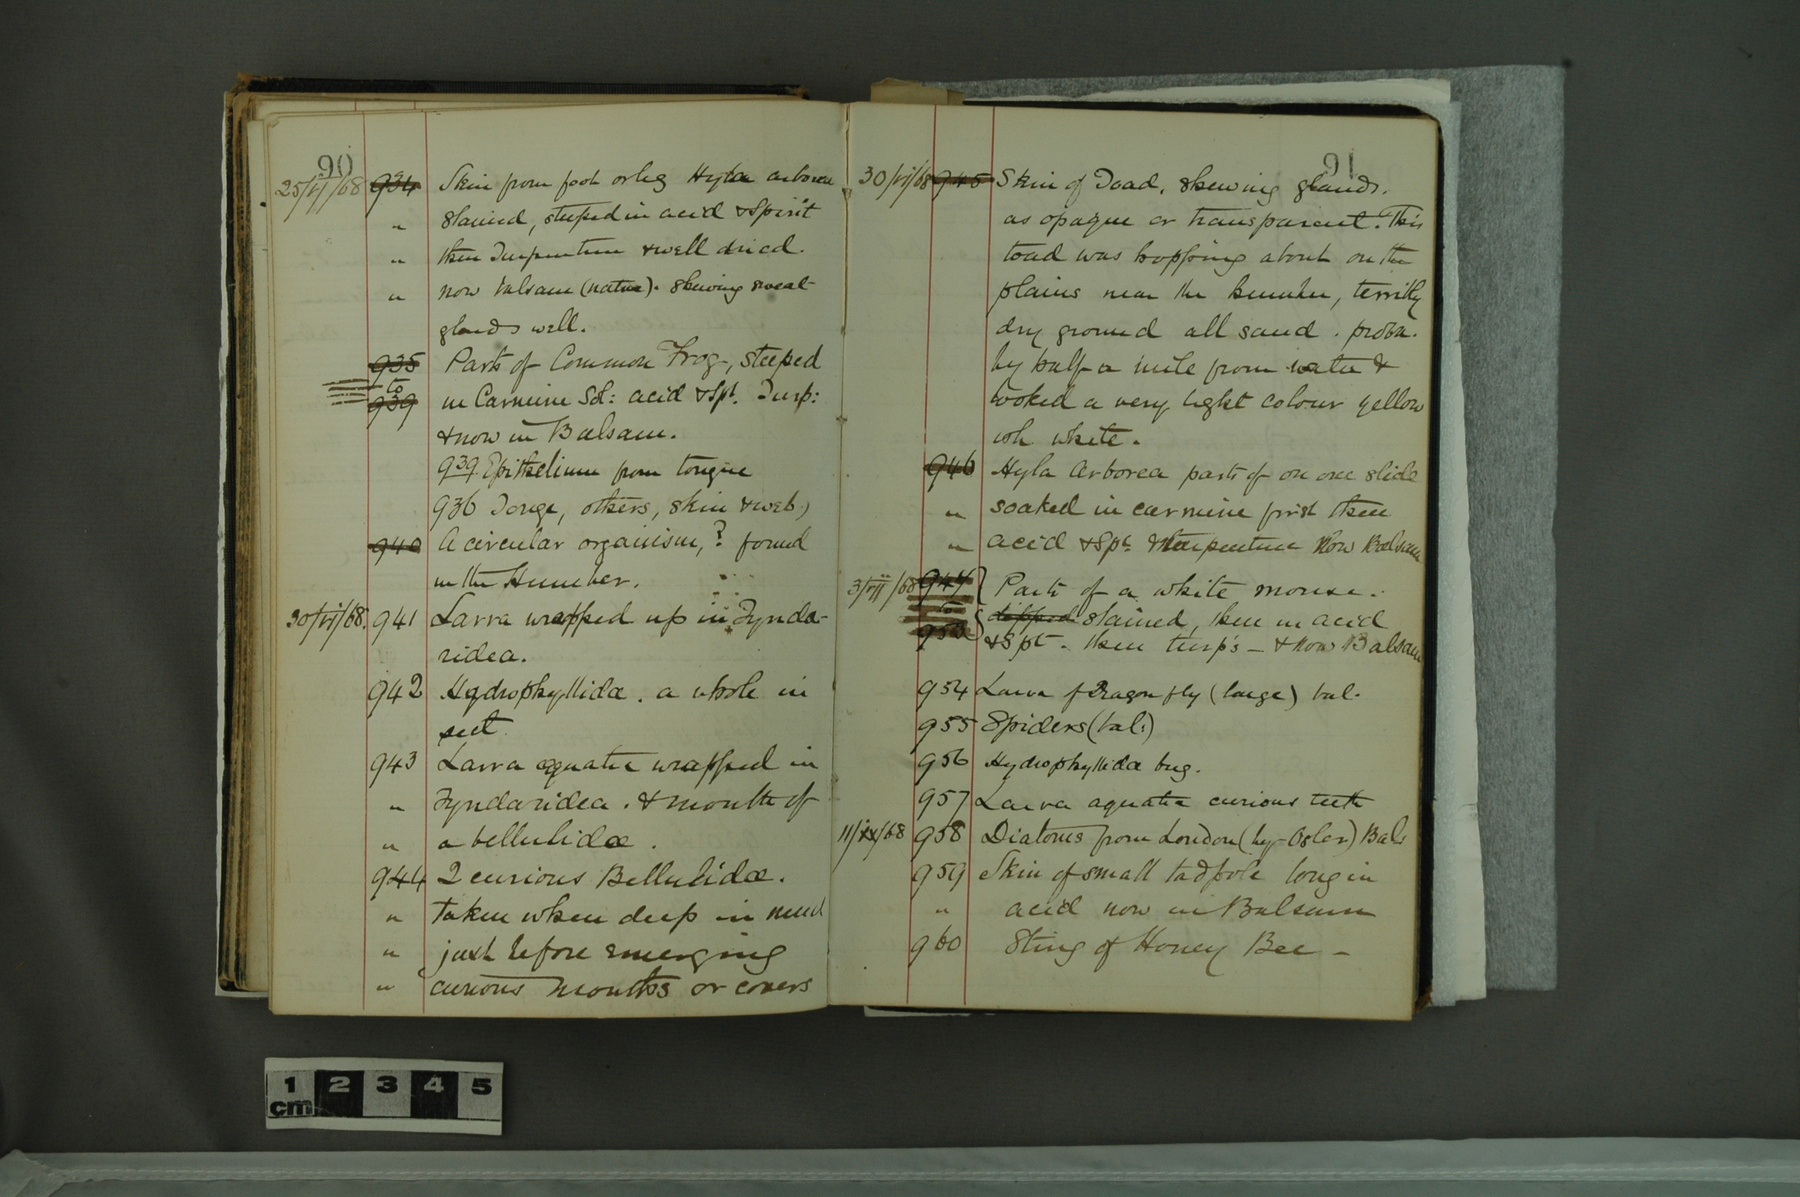 90
25/vj/68 934 Skin from foot or leg Hyla arborea
" stained, steeped in acid & Spirit
" then Turpentine & well dried.
" now balsam (native). shewing sweat
glands well.
935 Parts of Common Frog, steeped
to
939 in Carmine Sol: acid & Spt. Turp:
& now in Balsam.
939 Epithelium from tongue
936 Tonge, others, skin & web)
940 A circular organism,? found
in the Humber.
30/vj/68. 941 Larva wrapped up in Zynda-
ridea.
942 Hydrophyllidæ. a whole in
sect
943 Larva aquatic wrapped in
" Zyndaridea. & mouth of
" a bellulidæ.
944 2 curious Bellulidæ.
" taken when deep in mud
" just before emerging
" curious mouths or covers
91
30/vj/68 945 Skin of Toad, shewing glands.
as opaque or transparent. This
toad was hopping about on the
plains near the Humber, terribly
dry ground all sand. proba.
bly half a mile from water &
looked a very light colour yellow
ish white.
946 Hyla Arborea parts of on one slide
" soaked in carmine first then
" acid & Spt. & turpentine Now Balsam
3/vij/68 947 Parts of a white mouse.
to stained, then in acid
953 & Spt. then turps - & now Balsam
954 Larva of Dragon fly (large) bal.
955 Spiders (bal:)
956 Hydrophyllidæ bug.
957 Larva aquatic curious teeth
11/ix/68 958 Diatoms from London (by Osler) Bals
959 Skin of small tadpole long in
" acid now in Balsam
960 Sting of Honey Bee -
1 2 3 4 5
cm